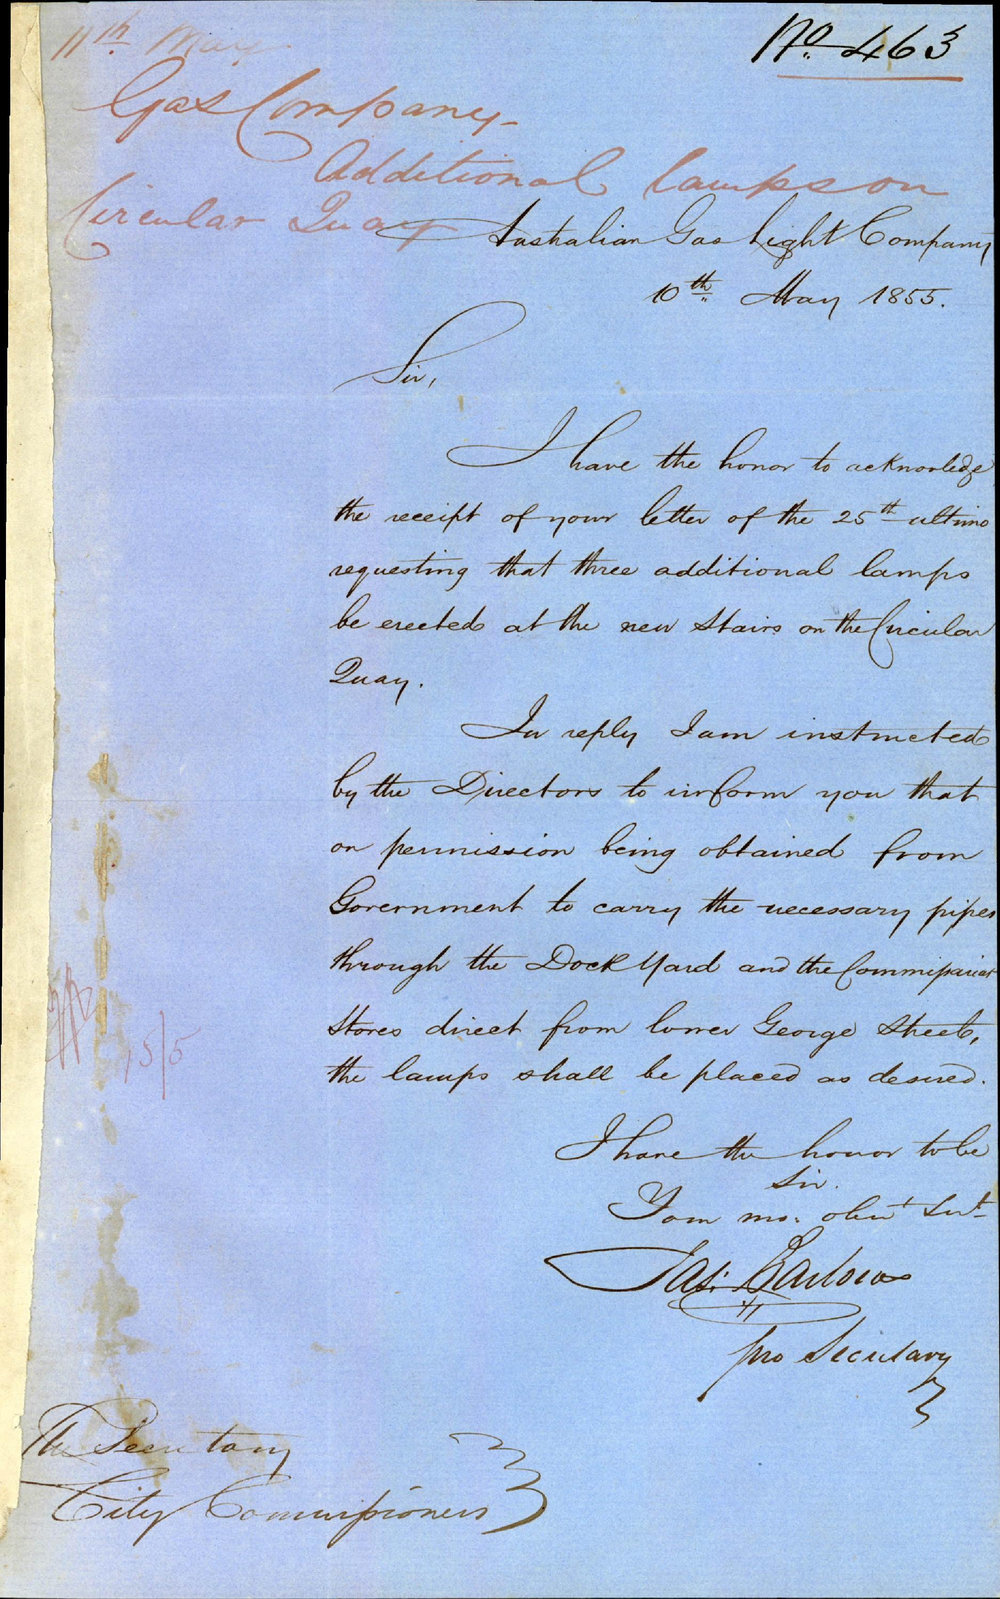 11th May
No. 463
Gas Company-
Additional lamps on
Circular Quay
Australian Gas Light Company
10th May 1855.
Sir,
I have the honor to acknowledge
the receipt of your letter of the 25th ultimo
requesting that three additional lamps
be erected at the new Stairs on the Circular
Quay.
In reply I am instructed
by the Directors to inform you that
on permission being obtained from
Government to carry the necessary pipes
through the Dock Yard and the Commissariat
Stores direct from lower George Street,
the lamps shall be placed as desired.
15/5
I have the honor to be
Sir.
Your mo: obt. Svt
Jas: Barlow
pro Secretary
The Secretary
City Commissioners